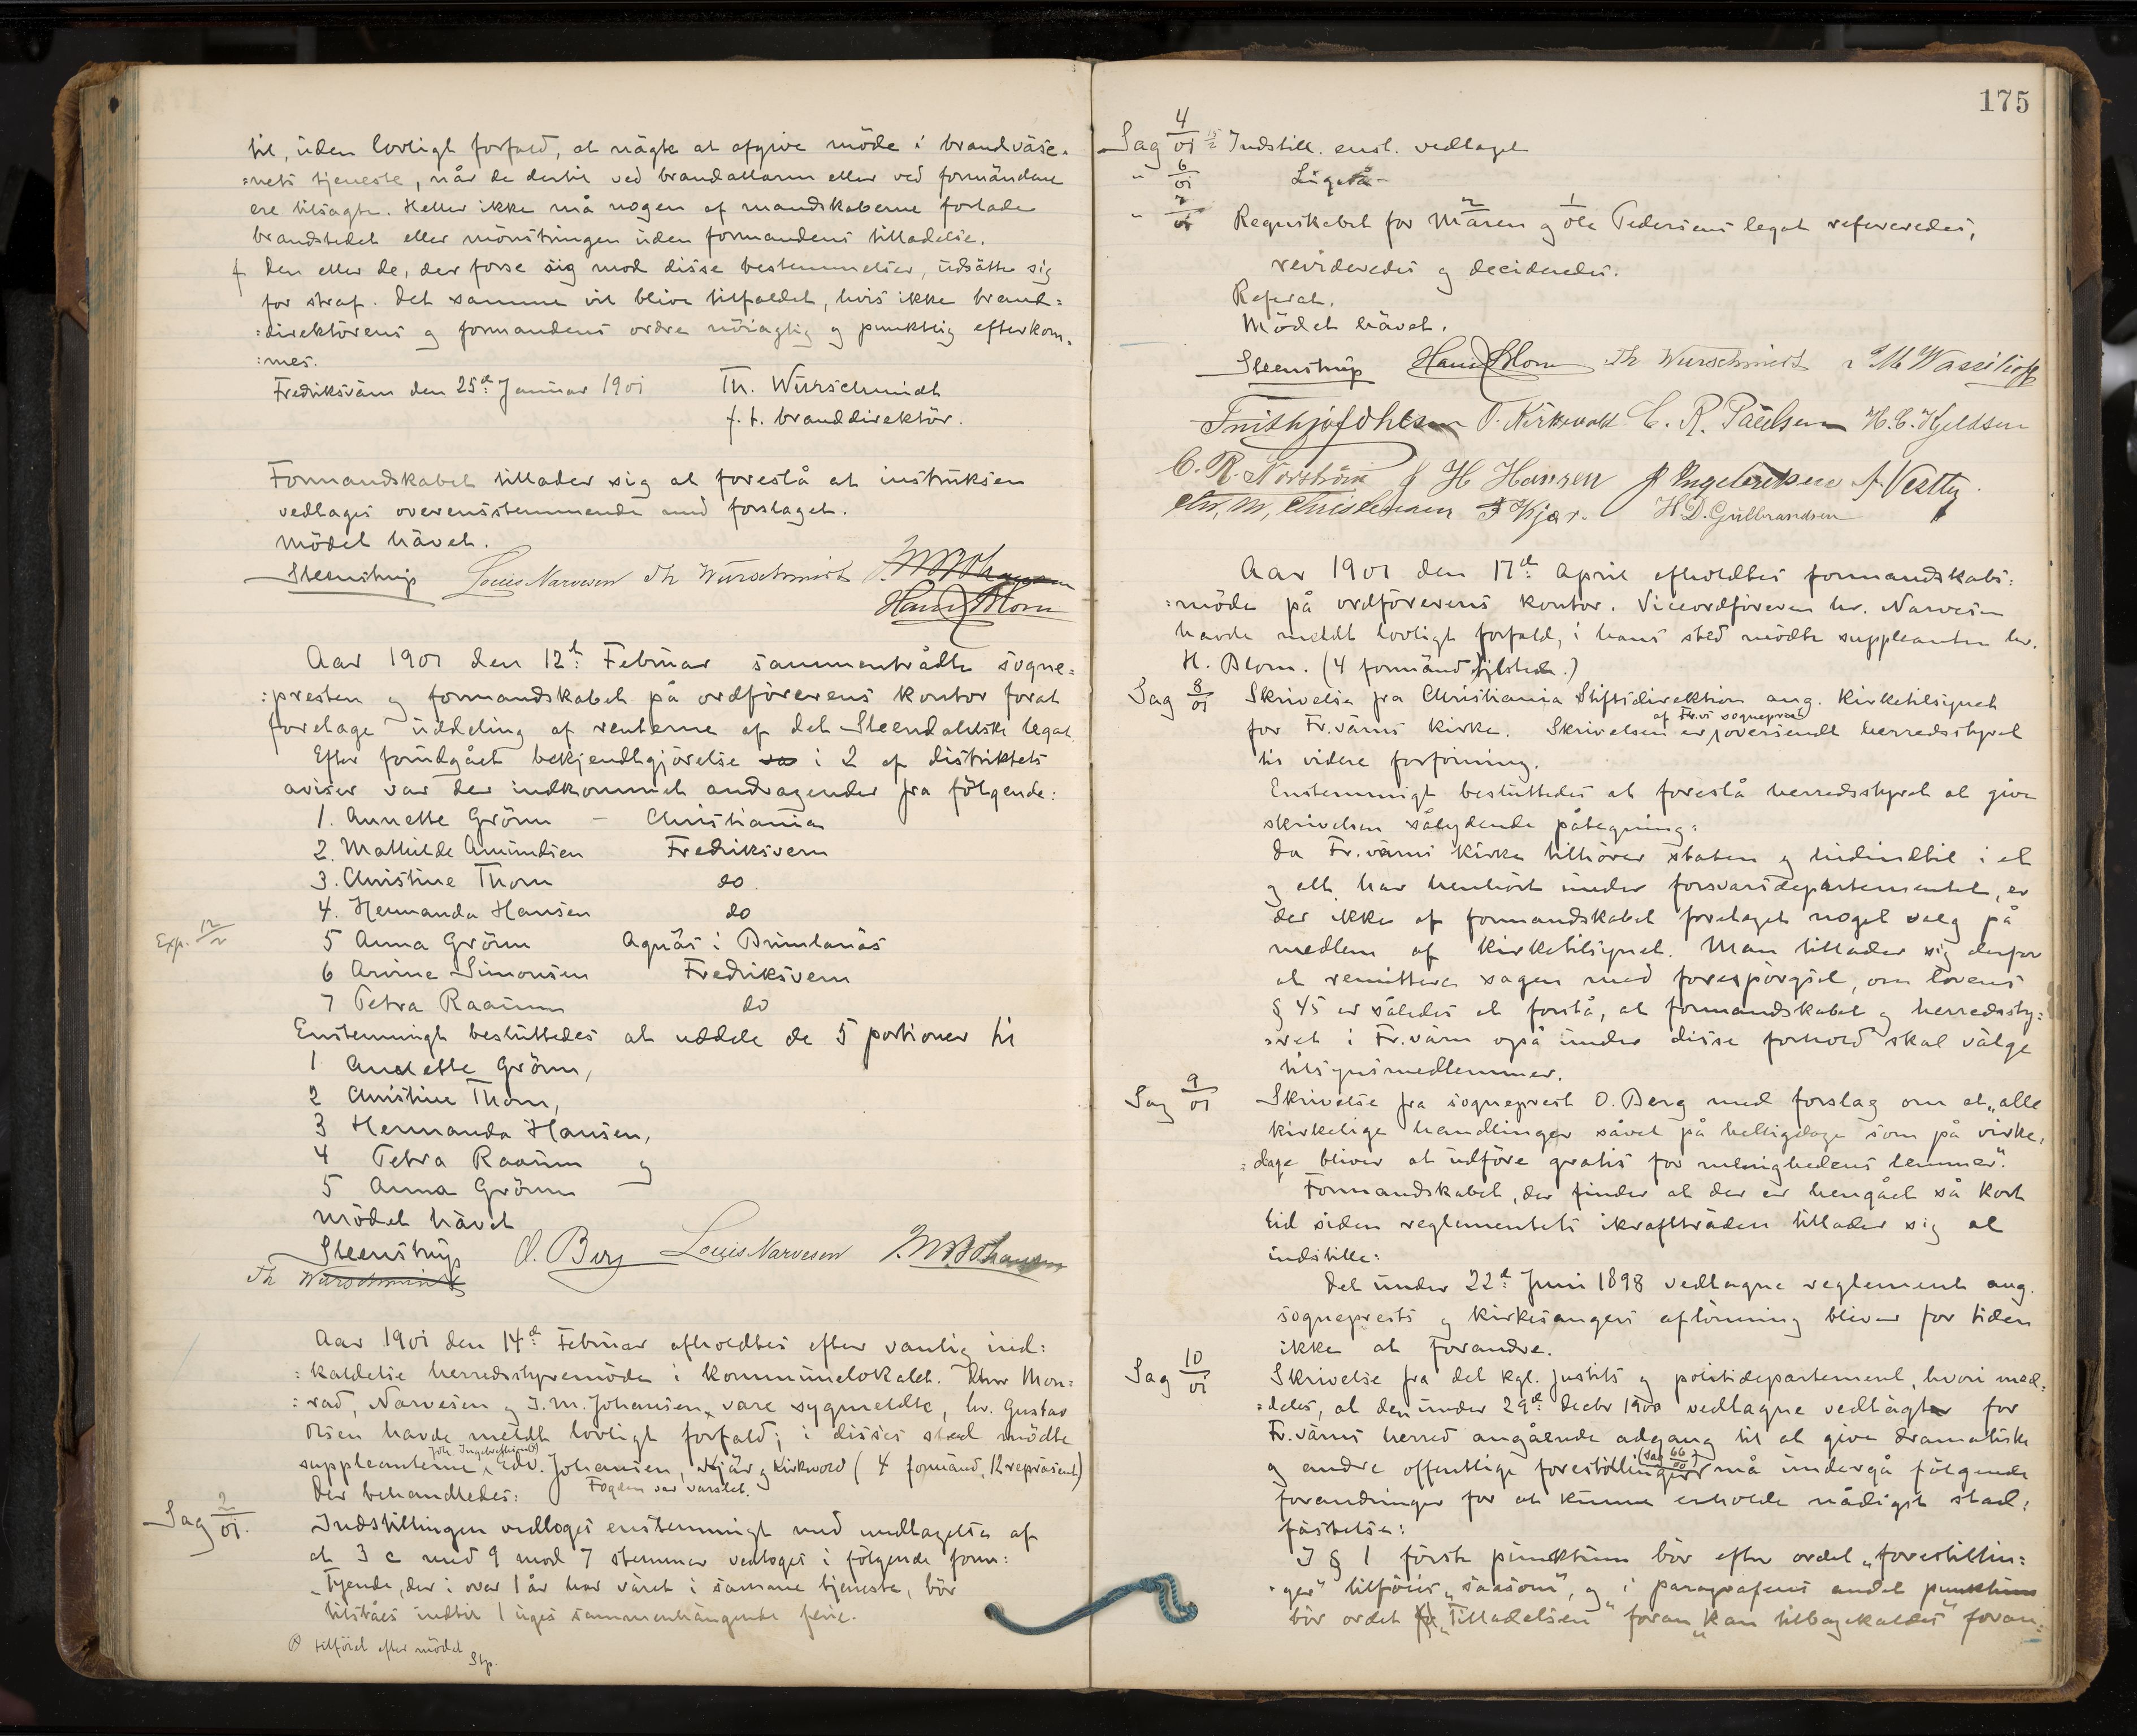 til, uden lovligt forfald, at nägte at afgive möde i brandväse-
:nets tjeneste, når de dertil ved brandallarm eller ved formändene
ere tilsagte. Heller ikke må nogen af mandskaberne forlade
brandstedet eller mönstringen uden formandens tilladelse.
f Den eller de, der forse sig mod disse bestemmelser, udsätte sig
for straf. Det samme vil blive tilfaldet, hvis ikke brand:
:direktörens og formandens ordre nöiagtig og punktlig efterkom-
:mes.
Fredriksvärn den 25d: Januar 1901 Th. Würschmidt
f. t. branddirektör.
Formandskabet tillader sig at foreslå at instruksen
vedtages overensstemmende med forslaget.
Mödet hävet.
Steenstrup Louis Narvesen Th Würschmidt J. M. Johansen
Hans Blom
Aar 1901 den 12t: Februar sammentrådte sogne:
:presten og formandskabet på ordförerens kontor forat
foretage uddeling af renterne af det Steendahlske legat.
Efter forudgået bekjendtgjörelse i 2 af distriktets
aviser var der indkommet andragender fra fölgende:
1. Annette Grönn – Christiania
2. Mathilde Amundsen Fredriksvern
3. Christine Thorn do
4. Hermanda Hansen do
Exp. 12/2
5 Anna Grönn Agnäs i Brunlanäs
6 Arvine Simonsen Fredriksvern
7 Petra Raaum do
Enstemmigt besluttedes at uddele de 5 portioner til
1 Annette Grönn,
2 Christine Thorn,
3 Hermanda Hansen,
4 Petra Raaum og
5 Anna Grönn
Mödet hävet
Steenstrup O. Berg Louis Narvesen J. M. Johansen
Th Würschmidt
Aar 1901 den 14d: Februar afholdtes efter vanlig ind:
:kaldelse herredsstyremöde i kommunelokalet. Dhrr Mon:
:rad, Narvesen og J. M. Johansen, vare sygmeldte, hr. Gustav
Olsen havde meldt lovligt forfald; i disses sted mödte
Joh. Ingebrethsen
suppleanterne, Edv. Johansen, Kjär og Kirkvold (4 formänd, 12 repräsent.)
Der behandledes: Fogden var varslet.
Sag 2/01. Indstillingen vedtoges enstemmigt med undtagelse af
at 3 c med 9 mod 7 stemmer vedtoges i fölgende form:
„Tyende, der i over 1 år har väret i samme tjeneste, bör
tilståes indtil 1 uges sammenhängende ferie.
tilföiet efter mödet Stp.
175
Sag 4/01 Indstill. enst. vedtaget
" 6/01 Ligeså –
" 7/01 Regnskabet for Maren og Ole Pedersens legat refereredes,
revideredes og decideredes.
Referat.
Mödet hävet.
Steenstrup Hans Blom Th Würschmidt M Wassilioff
Frithjof Ohlsen O. Kirkevold C. R. Paulsen H. C. Kjeldsen
C. R. Norström J H Hansen J Ingebretsen A Vestby.
Chr, M, Christensen J Kjær. H. D. Gulbrandsen
Aar 1901 den 17d: April afholdtes formandskabs:
:möde på ordförerens kontor. Viceordföreren hr. Narvesen
havde meldt lovligt forfald, i hans sted mödte suppleanten hr.
H. Blom. (4 formänd tilstede.)
Sag 8/01 Skrivelse fra Christiania Stiftsdirektion ang. kirketilsynet
af Fr.vs sogneprest
for Fr.värns kirke. Skrivelsen er oversendt herredsstyret
til videre forföining.
Enstemmigt besluttedes at foreslå herredsstyret at give
skrivelsen sålydende påtegning:
Da Fr.värns kirke tilhörer staten og hidindtil i et
og alt har henhört under forsvarsdepartementet, er
der ikke af formandskabet foretaget noget valg på
medlem af kirketilsynet. Man tillader sig derfor
at remittere sagen med forespörgsel, om lovens
§ 45 er således at forstå, at formandskabet og herredssty:
:ret i Fr.värn også under disse forhold skal välge
tilsynsmedlemmer.
Sag 9/01 Skrivelse fra sogneprest O. Berg med forslag om at „alle
kirkelige handlinger såvel på helligdage som på virke:
:dage bliver at udföre gratis for menighedens lemmer".
Formandskabet, der finder at der er hengået så kort
tid siden reglementets ikrafttråden tillader sig at
indstille:
Det under 22d: Juni 1898 vedtagne reglement ang.
sogneprests og kirkesangers aflönning bliver for tiden
ikke at forandre.
Sag 10/01 Skrivelse fra det kgl. justits og politidepartement, hvori med:
:deles, at den under 29d: decbr 1900 vedtagne vedtägt for
Fr.värns herred angående adgang til at give dramatiske
(Sag 66/00)
og andre offentlige forestillinger må undergå fölgende
forandringer for at kunne erholde nådigst stad:
fästelse:
I § 1 förste punktum bör efter ordet „forestillin:
:ger" tilföies „såsom", og i paragrafens andet punktum
bör ordet „Tilladelsen" foran „kan tilbagekaldes" foran: